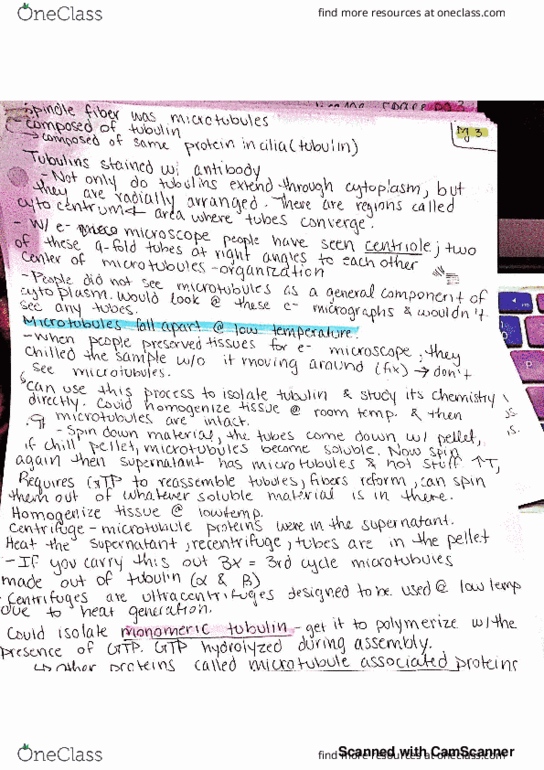 OneClass
find more resources at oneclass.com
pg 3
spindle fiber was microtubules
composed of tubulin
→ composed of same protein in cilia (tubulin)
Tubulins stained w/ antibody
- Not only do tubulins extend through cytoplasm, but
they are radially arranged. There are regions called
cyto centrum ← area where tubes converge.
- W/ e- microscope people have seen centriole; two
of these 9-fold tubes at right angles to each other
center of microtubules - organization
- People did not see microtubules as a general component of
cytoplasm. Would look @ these e- micrographs & wouldn't
see any tubes.
Microtubules fall apart @ low temperature.
- When people preserved tissues for e- microscope, they
chilled the sample w/o it moving around (fix) → don't
see microtubules.
can use this process to isolate tubulin & study its chemistry
directly. Could homogenize tissue @ room temp. & then
microtubules are intact.
- Spin down material, the tubes come down w/ pellet,
if chill pellet, microtubules become soluble. Now spin
again then supernatant has microtubules & not stuff ↑T,
Requires GTP to reassemble tubules, fibers reform, can spin
them out of whatever soluble material is in there.
Homogenize tissue @ low temp.
Centrifuge - microtubule proteins were in the supernatant.
Heat the supernatant, recentrifuge, tubes are in the pellet
- If you carry this out 3x = 3rd cycle microtubules
made out of tubulin (α & β)
Centrifuges are ultracentrifuges designed to be used @ low temp
due to heat generation.
Could isolate monomeric tubulin - get it to polymerize w/ the
presence of GTP. GTP hydrolyzed during assembly.
↳ other proteins called microtubule associated proteins
OneClass
find more resources at oneclass.com
Scanned with CamScanner